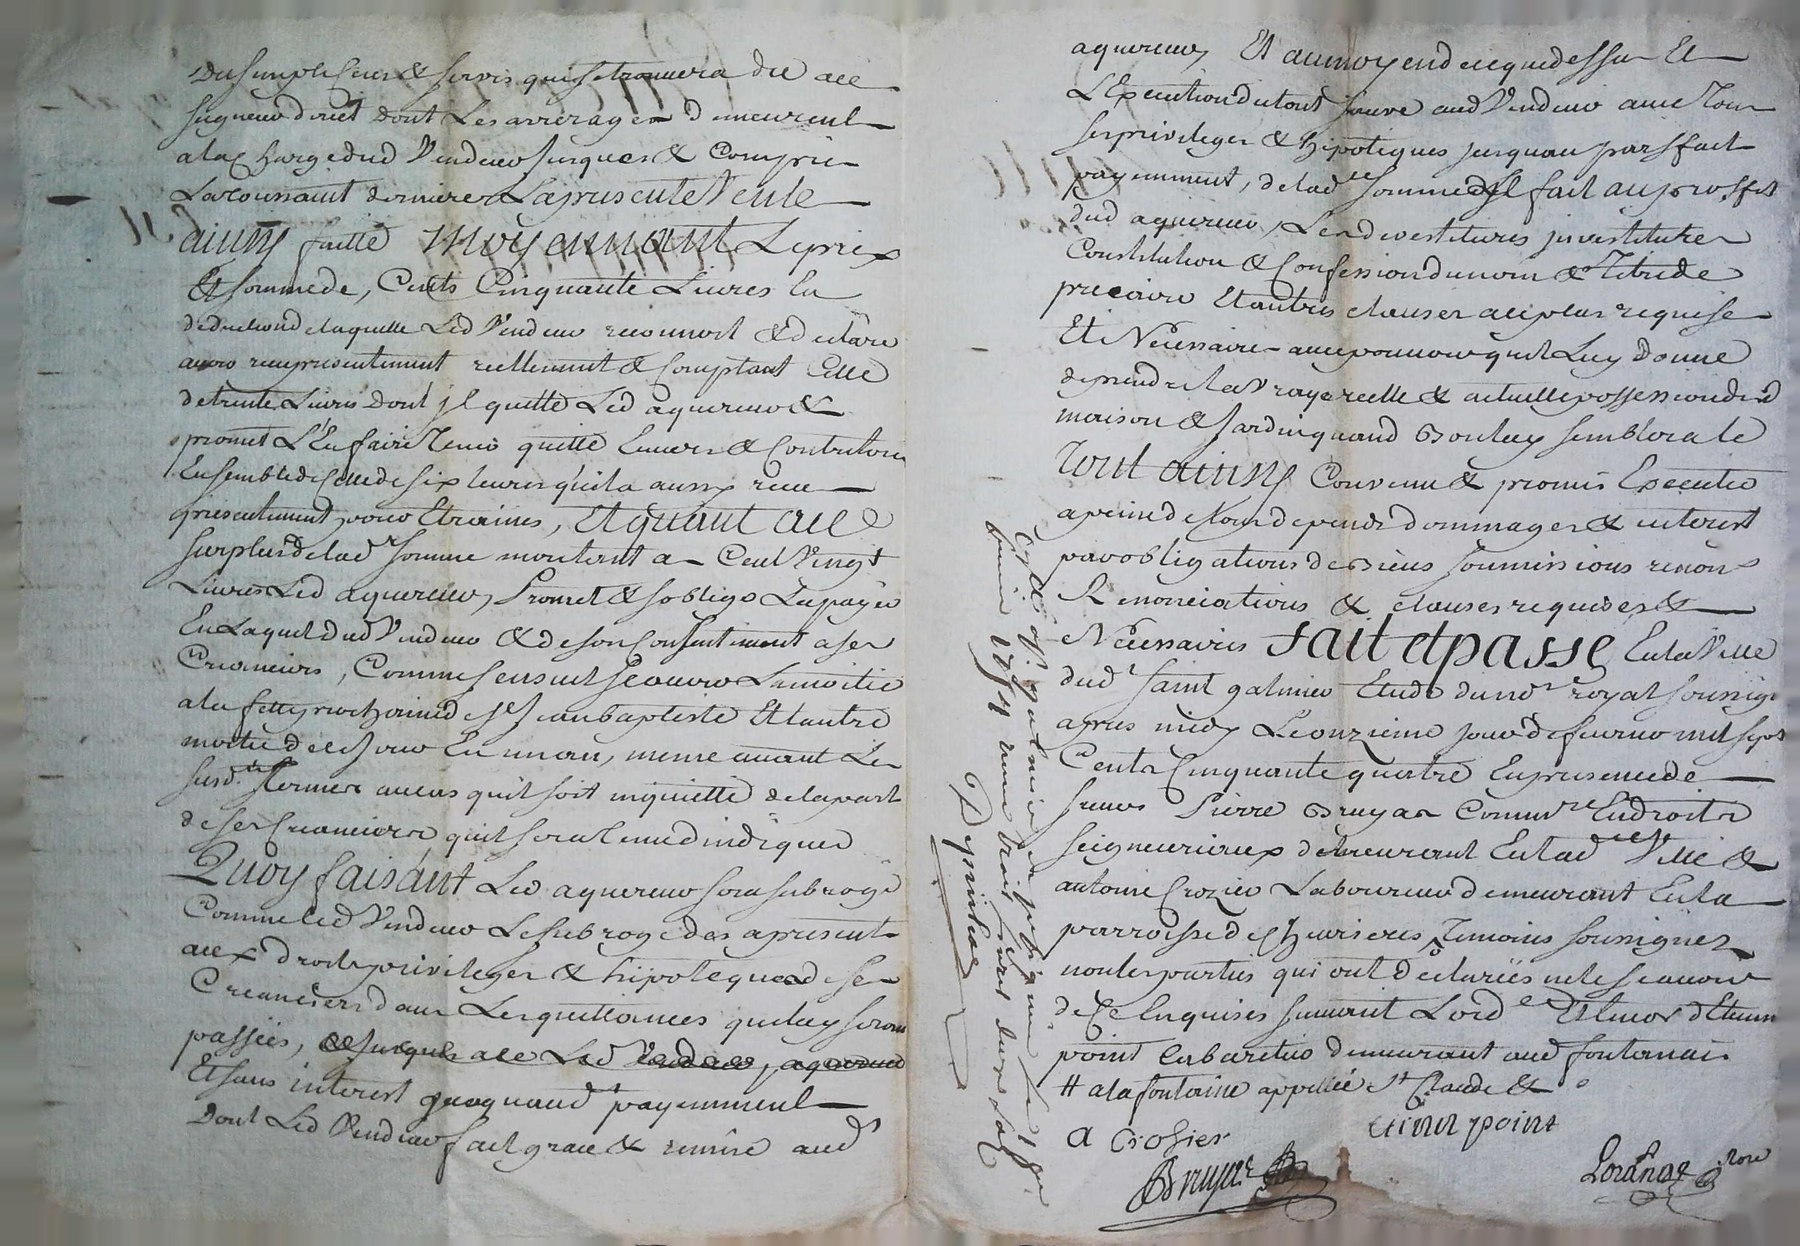 Du simple Cens & servis qui se trouvera du au
seigneur direct dont Les arrerages demeurent
a la Charge dud Vendeur jusques & Compris
La courrante derniere La presente Vente
ainsy faitte moyennant Le prix
Et somme de, Cents Cinquante Livres En
deduction de laquelle Led Vendeur reconnoit & declare
avoir reçu presentement reellement & Comptant Celle
de trente Livres dont jl quitte Led aquereur &
promet L'En faire Tenir quitte Envers & Contre tous
Ensemble de Celle de six livres qu'il a aussy reçue
presentement pour Etraines, Et quant au
surplus de lad. somme montant a Cent Vingt
Livres Led aquereur, Promet & s'oblige La payer
En L'aquit dud Vendeur & de son Consentiment a ses
Creanciers, Comme s'ensuit sçavoir La moitié
a la feste prochaine de St Jean baptiste Et l'autre
moitié de ce jour En un an, meme avant Les
susd. termes au cas qu'il soit inquietté de la part
de ses Creanciers qu'il sera tenu d'indiquer
Quoy faisant Led aquereur sera subrogé
Comme Led Vendeur Le subroge des apresent
aux droits privileges & hipoteques de ses
Creanciers dans Les quittances qui luy seront
passées,
Et sans interest jusquaud payemment
Dont Led Vendeur fait grace & remise aud
aquereur, Et au moyend ce que dessus Et
L'Execution du tout sauve aud Vendeur avec Tous
ses privileges & hipoteques jusquau parsfait
payemment, de lad somme Il fait au proffit
dud aquereur, Les devestitures investitures
Constitution & Confession du nom & Titre de
precaire Et autres clauses au plus requise
Et Necessaire avec pouvoir qu'il Luy donne
de prendre la Vraye reelle & actuelle possession dud
maison & Jardin quand Bon luy semblera le
Tout ainsy Convenu & promis Executer
a peine de tous depends dommages & interest
par obligations de Biens soumissions renon
Renonciations & clauses requises &
Necessaires fait et passé En la Ville
dud. saint galmier Etude du no.re royal soussigné
apres midy Le onzieme jour de fevrier mil sept
Cents Cinquante quatre En presence de
sieurs Pierre Bruyas Comm.re En droits
seigneuriaux demeurant En lad Ville &
antoine Crozier Laboureur demeurant En la
parroisse de Temoins soussignez
non les parties qui ont declarées ne le sçavoir
de Ce Enquises suivant L'ord.ce Et
point Cabaretier demeurant aud fontanais
# a la fontaine appellée St Claude & .
A Crosier
point
Bruyas
Lorange Nore
Cgl a st galmier
fevrier 1754 reçu
Depinhac